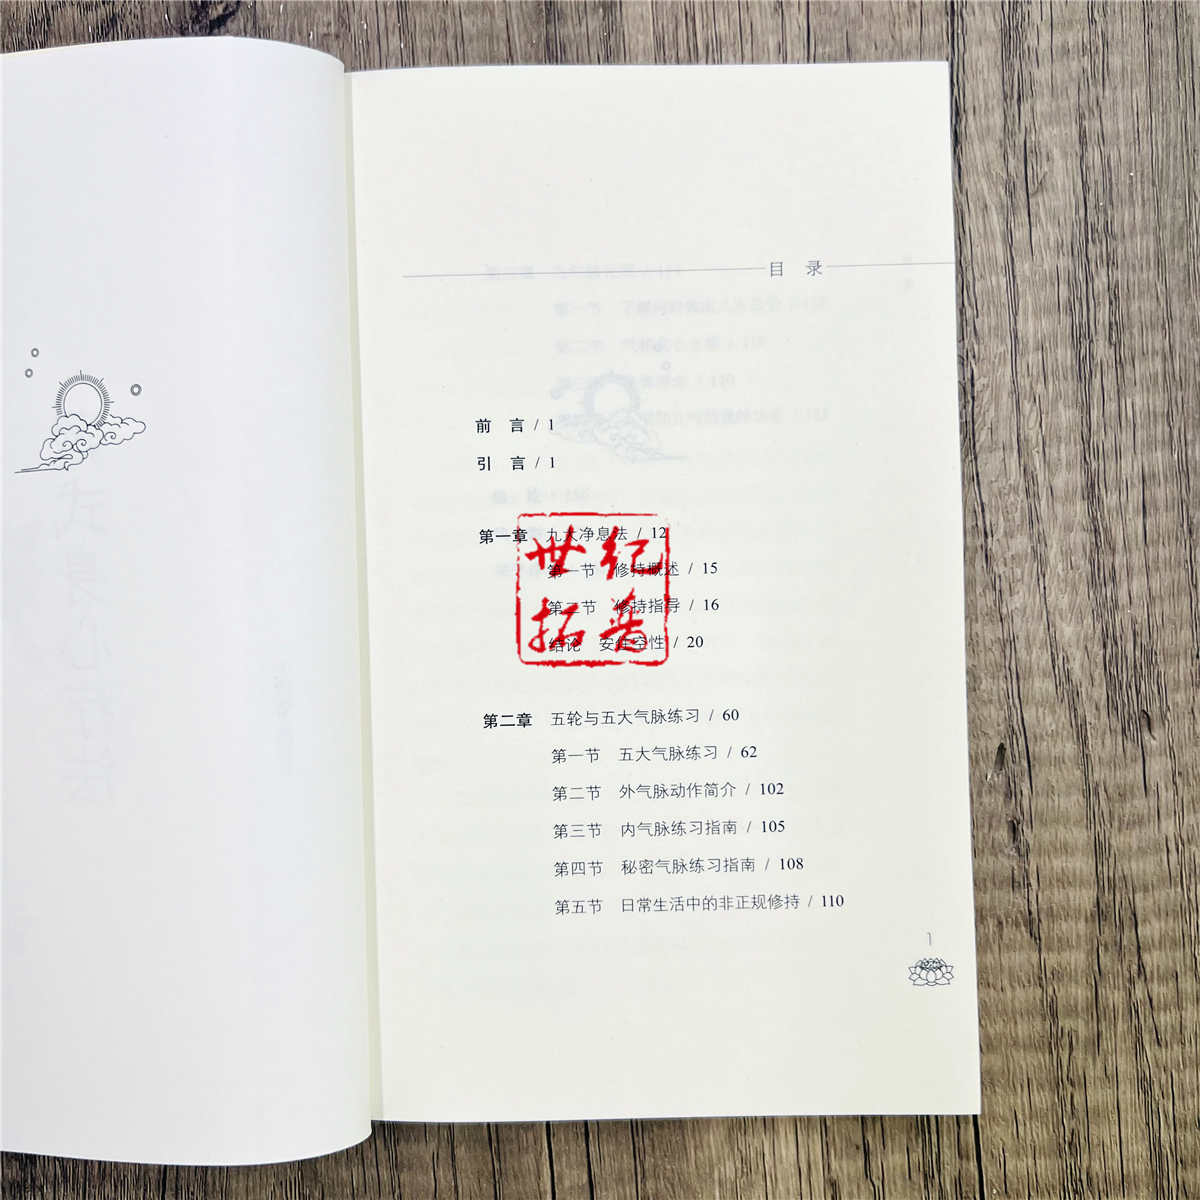 目 录
前 言 / 1
引 言 / 1
第一章 九大净息法 / 12
第一节 修持概述 / 15
第二节 修持指导 / 16
结论 安住空性 / 20
世纪
拓普
第二章 五轮与五大气脉练习 / 60
第一节 五大气脉练习 / 62
第二节 外气脉动作简介 / 102
第三节 内气脉练习指南 / 105
第四节 秘密气脉练习指南 / 108
第五节 日常生活中的非正规修持 / 110
1